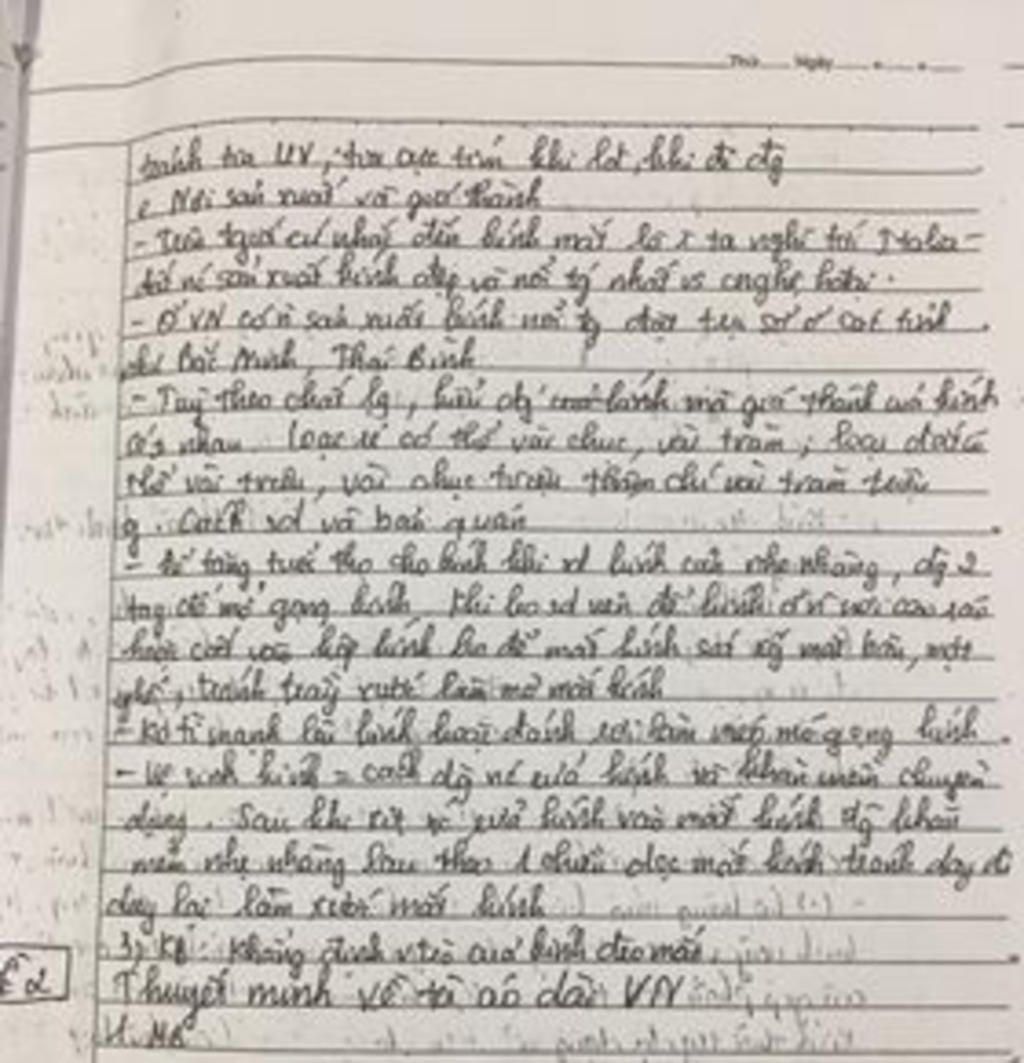 Thứ Ngày
tránh tia UV, tia cực tím khi lđ, khi đi đg
e, Nơi sản xuất và giá thành
- Trên tgiới cứ nhắc đến kính mắt là ta nghĩ tới Italia -
sản xuất kính đẹp và nổi tg nhất vs cnghệ hđại.
- Ở VN có n sản xuất kính nổi tg đặt trụ sở ở các tỉnh
như Bắc Ninh, Thái Bình
- Tuỳ theo chất lg, kiểu kính mà giá thành của kính
nhau. Loại rẻ có thể vài chục, vài trăm; loại đắt có
thể vài triệu, vài chục triệu thậm chí vài trăm triệu
g. Cách sd và bảo quản
- Để tăng tuổi thọ cho kính khi sd kính cần nhẹ nhàng, dg 2
tay để mở gọng kính. Khi ko sd nên để kính ở n nơi cao ráo
hoặc cất vào hộp kính ko để mắt kính sát xg mặt bàn, mặt
ghế, tránh trầy xước làm mờ mắt kính
- Ko tì mạnh lên kính làm méo mó gọng kính.
- Vệ sinh kính = cách dg nc rửa kính và khăn mềm chuyên
dụng. Sau khi xịt nc rửa kính vào mắt kính dg khăn
mềm nhẹ nhàng lau theo 1 chiều dọc mắt kính tránh day đi
day lại làm xước mắt kính
3) KB: Khẳng định vtrò của kính đeo mắt.
Thuyết minh về tà áo dài VN
MB